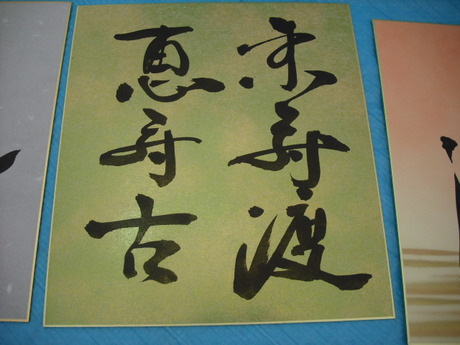 未寿渡
恵寿古